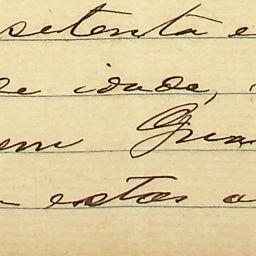 setenta e
de idade,
em
estas a